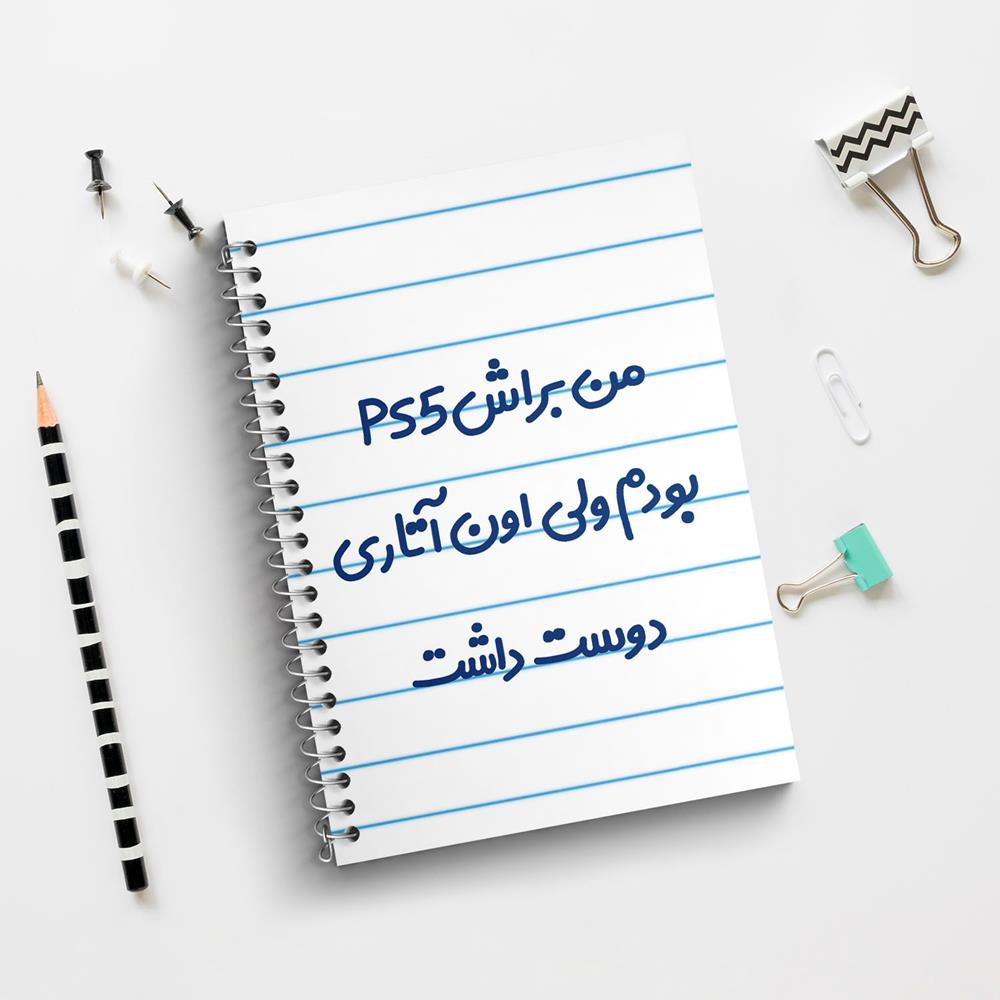 من براش PS5
بودم ولی اون آتاری
دوست داشت